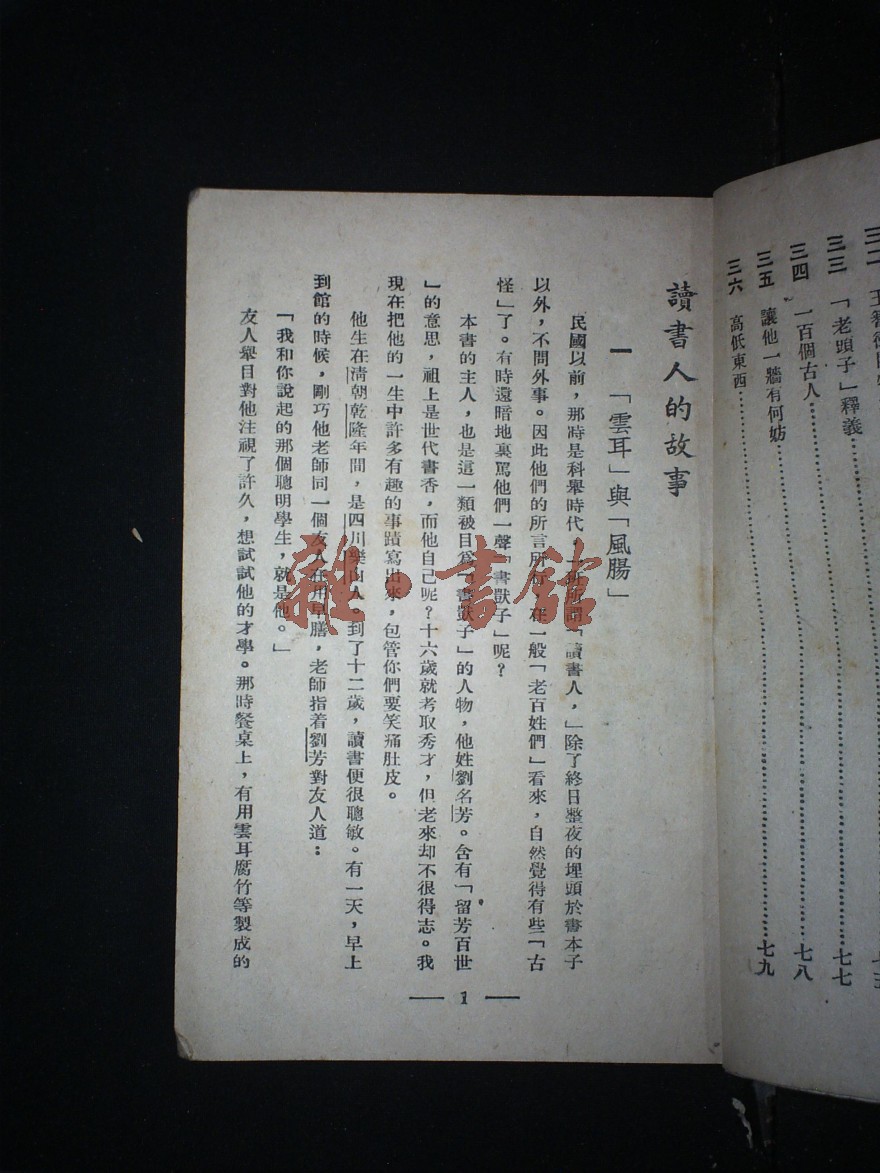 三三 「老頭子」釋義 七七
三四 一百個古人 七八
三五 讓他一牆有何妨
三六 高低東西 七九
讀書人的故事
一 「雲耳」與「風腸」
民國以前，那時是科舉時代，一班所謂「讀書人，」除了終日整夜的埋頭於書本子
以外，不問外事。因此他們的所言所行，在一般「老百姓們」看來，自然覺得有些「古
怪」了。有時還暗地裏罵他們一聲「書獃子」呢？
本書的主人，也是這一類被目爲「書獃子」的人物，他姓劉名芳。含有「留芳百世
」的意思，祖上是世代書香，而他自己呢？十六歲就考取秀才，但老來却不很得志。我
現在把他的一生中許多有趣的事蹟寫出來，包管你們要笑痛肚皮。
他生在清朝乾隆年間，是四川樂山人。到了十二歲，讀書便很聰敏。有一天，早上
到館的時候，剛巧他老師同一個友人在用早膳，老師指着劉芳對友人道：
「我和你說起的那個聰明學生，就是他。」
友人舉目對他注視了許久，想試試他的才學。那時餐桌上，有用雲耳腐竹等製成的
1
雜·書館